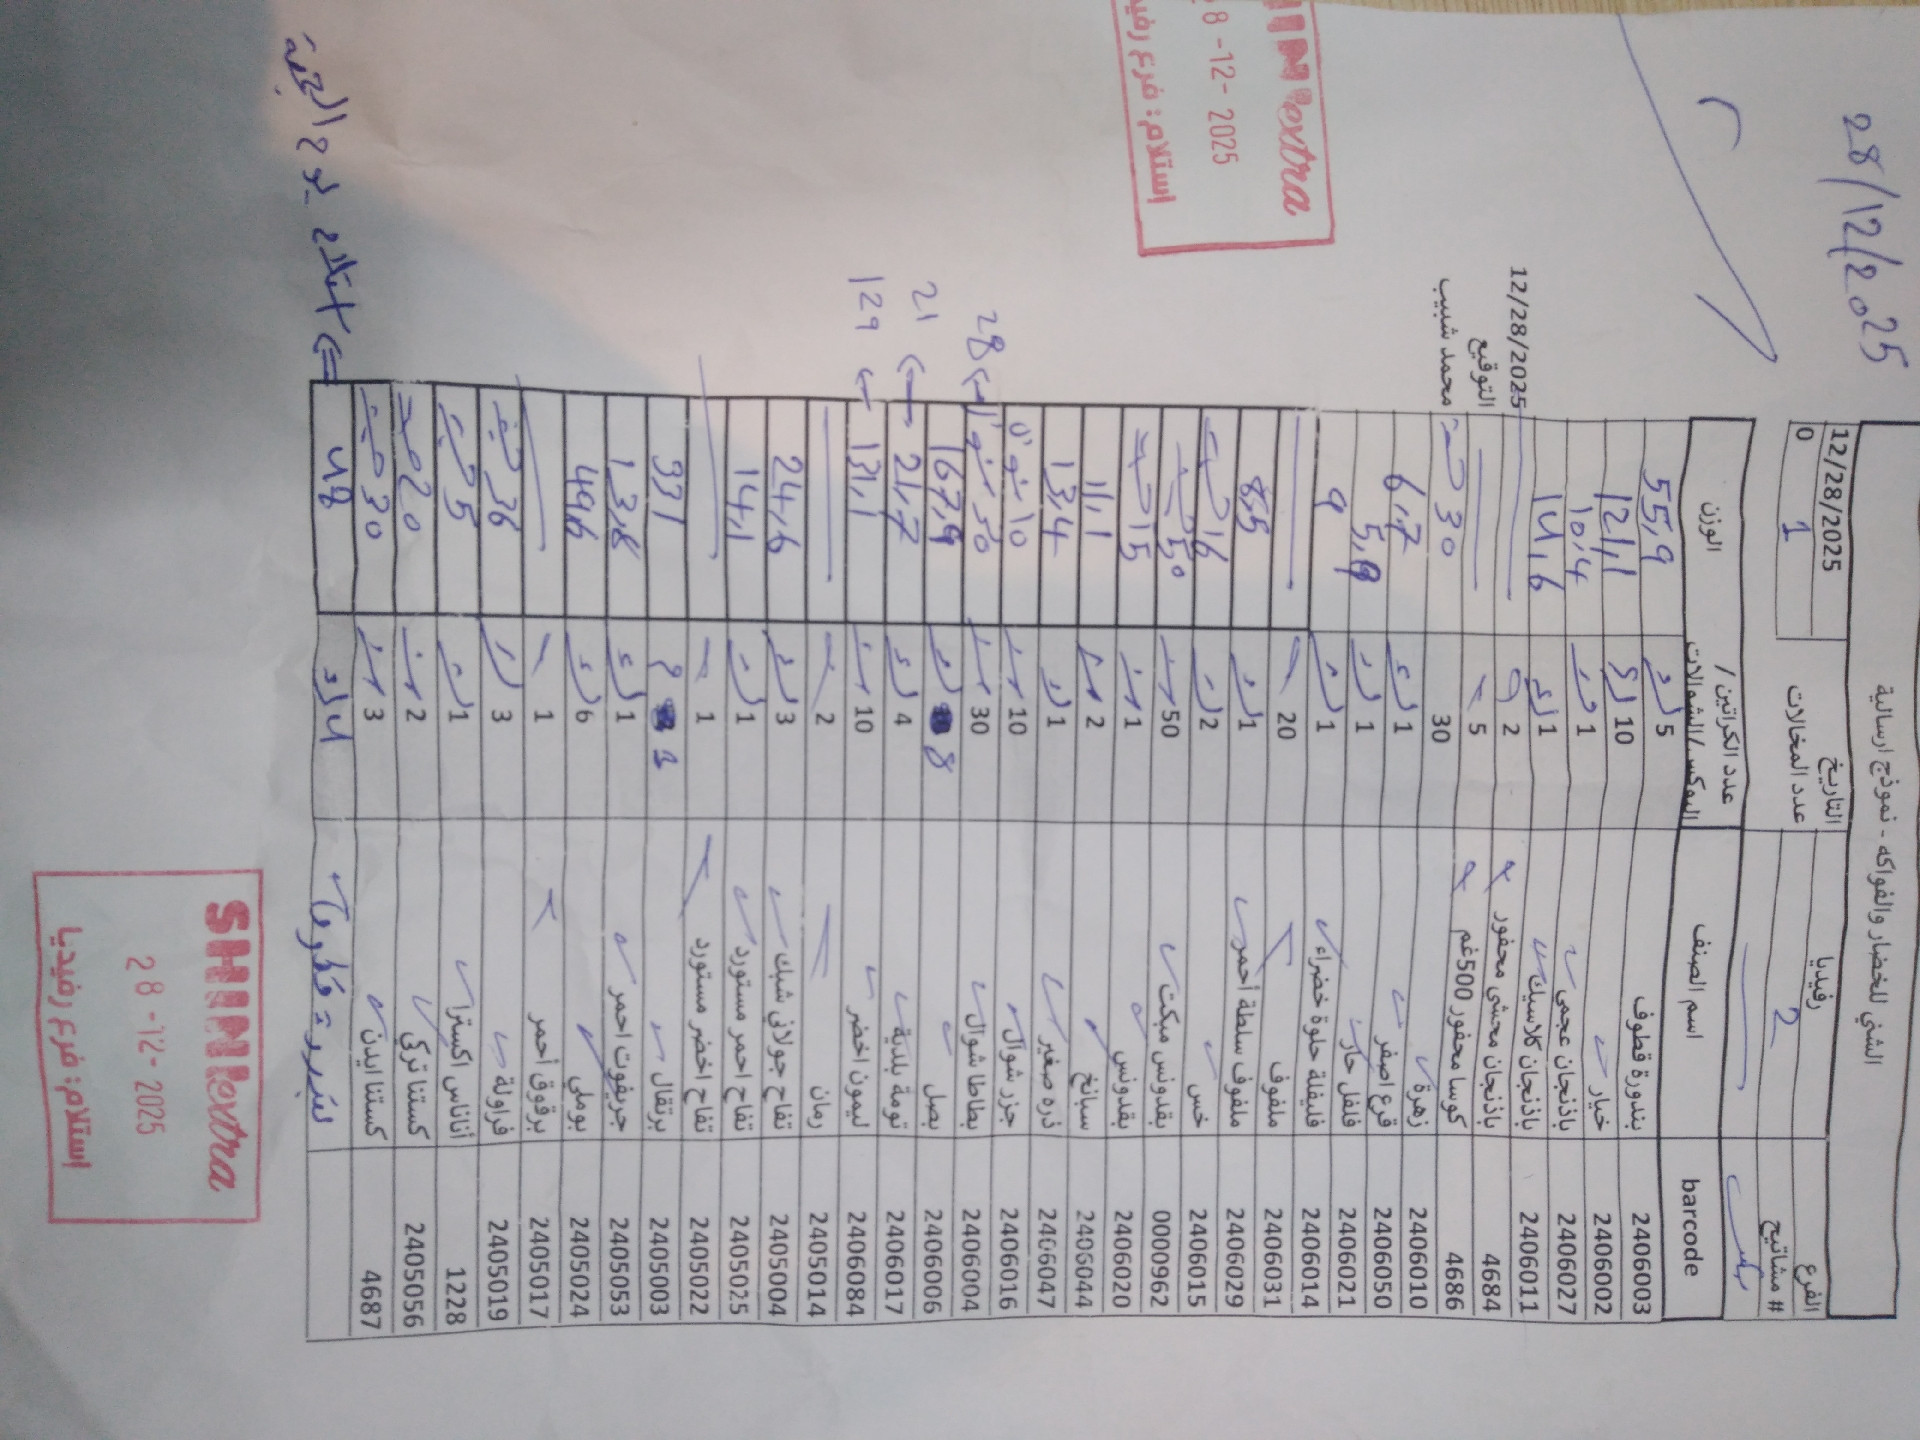 28/12/2025
الشني للخضار والفواكه - نموذج ارسالية
الفرع رفيديا التاريخ 12/28/2025
# مشاتيح 2 عدد المخالات 1 0
barcode اسم الصنف عدد الكراتين / البوكس/الشوالات الوزن
2406003 بندورة قطوف 5 55,9
2406002 خيار 10 121,1
2406027 باذنجان عجمي 1 10,4
2406011 باذنجان كلاسيك 1 14,6
4684 باذنجان محشي محفور 2
4686 كوسا محفور 500غم 5
30 30
2406010 زهرة 1 6,7
2406050 قرع اصفر 1 5,9
2406021 فلفل حار 1 9
2406014 فليفلة حلوة خضراء 1
2406031 ملفوف 20
2406029 ملفوف سلطة أحمر 1 8,5
2406015 خس 2 16
0000962 بقدونس مبكت 50 50
2406020 بقدونس 1 15
2406044 سبانخ 2 11,1
2406047 ذره صغير 1 13,4
2406016 جزر شوال 10 10
2406004 بطاطا شوال 30 50 28
2406006 بصل 8 167,9
2406017 تومة بلدية 4 21,7 21
2406084 ليمون اخضر 10 131,1 129
2405014 رمان 2
2405004 تفاح جولاني شبك 3 24,6
2405025 تفاح احمر مستورد 1 14,1
2405022 تفاح اخضر مستورد 1
2405003 برتقال 331
2405053 جريفوت احمر 1 13,8
2405024 بوملي 6 49,6
2405017 برقوق أحمر 1
2405019 فراولة 3 36
1228 أناناس اكسترا 1 5
2405056 كستنا تركي 2 20
4687 كستنا ايدن 3 30
48
12/28/2025
التوقيع
محمد شبيب
SHINIextra
28-12-2025
إستلام: فرع رفيديا
SHINIextra
28-12-2025
إستلام: فرع رفيديا